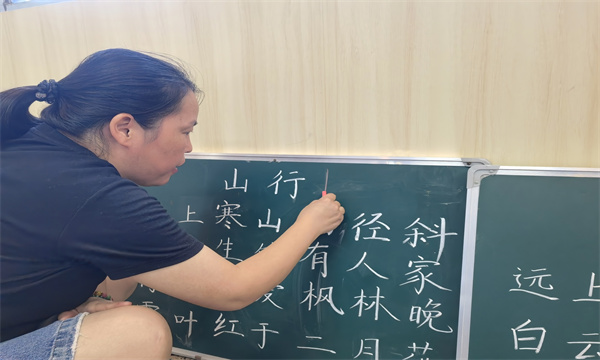 山行
上寒山径斜
生有人家
枫林晚
叶红于二月花
远上
白云